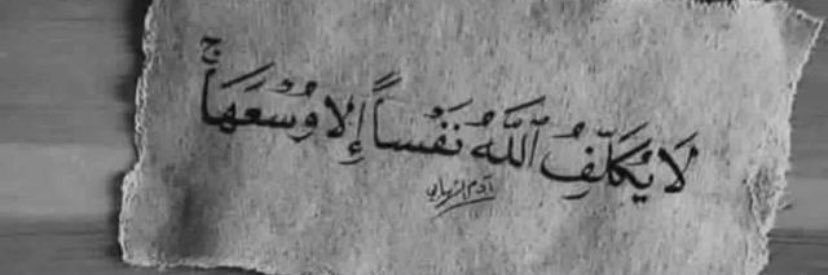 لَا يُكَلِّفُ ٱللَّهُ نَفْساً إِلا وُسْعَهَا ۚ